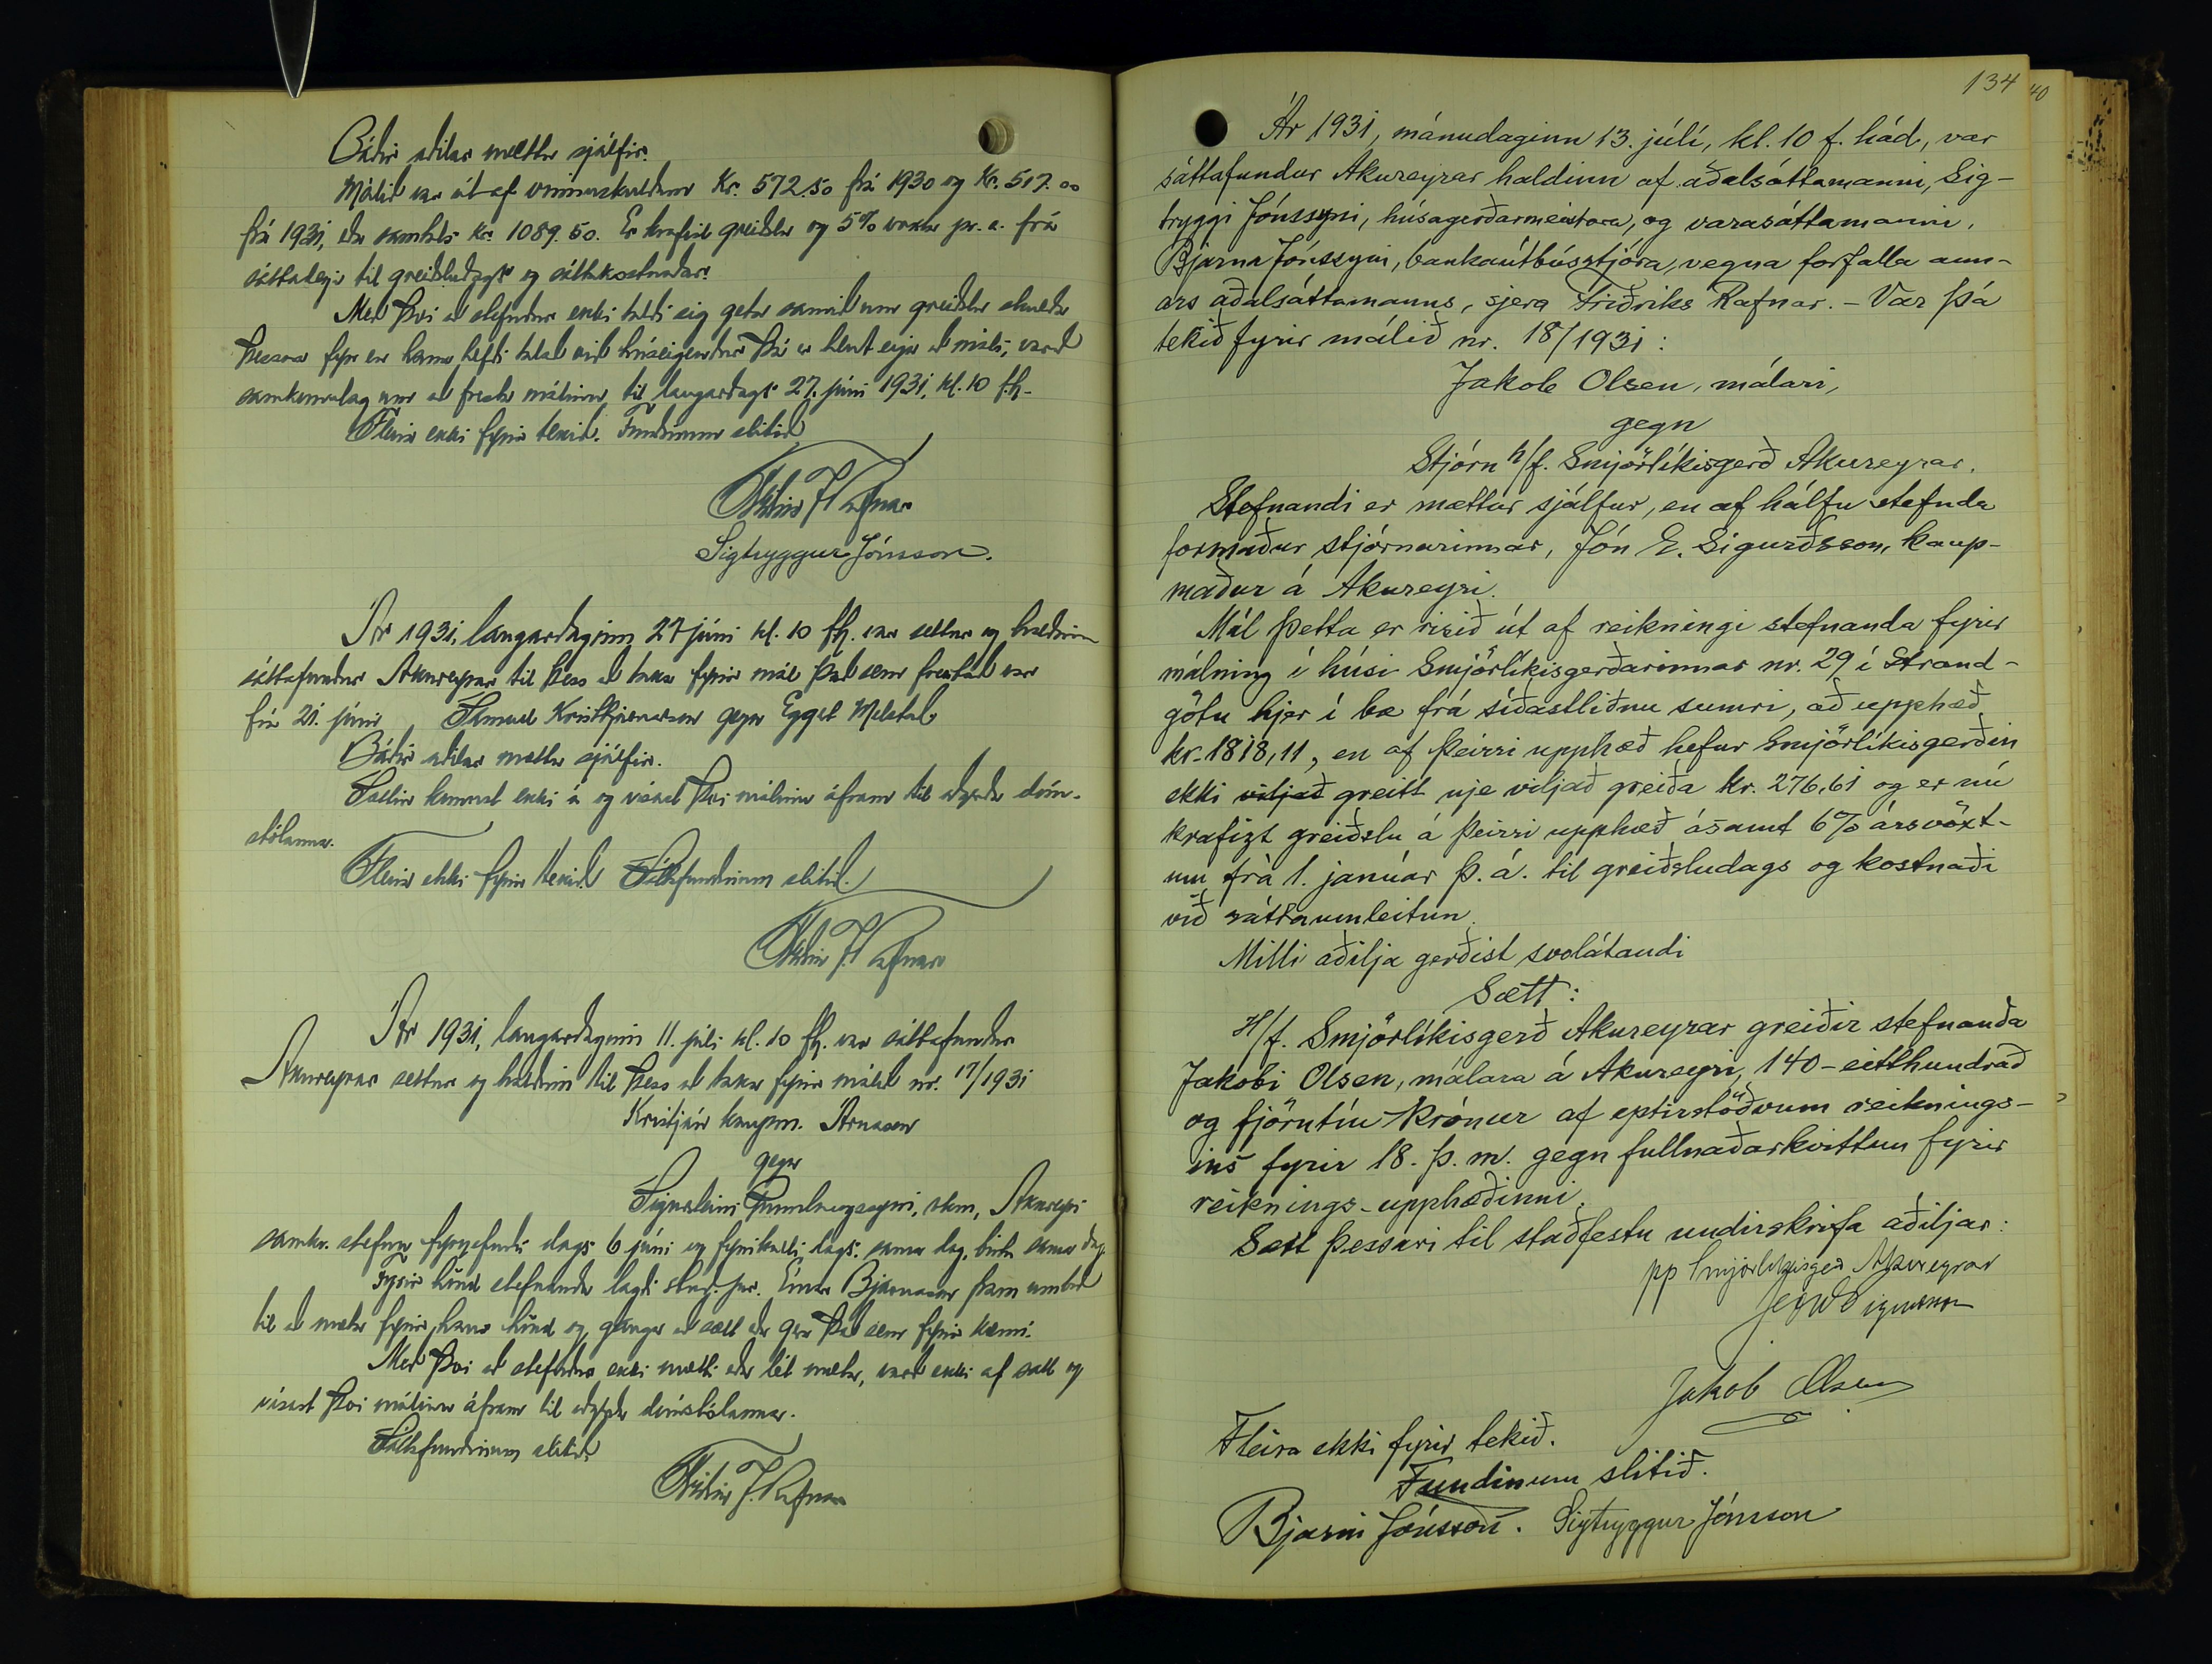 Báðir aðilar mættu sjálfir.
Málið var út af vinnuskuldum Kr. 572.50 frá 1930 og Kr. 517.00
frá 1931, eða samtals Kr. 1089.50. Er krafist greiðslu og 5% vaxta pr. a. frá
sáttadegi til greiðsludags og sáttakostnaðar.
Með því að stefndur ekki taldi sig geta samið um greiðslu skulda
þessara fyr en hann hefði talað við húseigendur þá er hlut eiga að máli, varð
samkomulag um að fresta málinu til laugardags 27. júni 1931, kl. 10 fh.
Fleira ekki fyrir tekið. Fundinum slitið
Friðrik J. Rafnar
Sigtryggur Jónsson.
Ár 1931, laugardaginn 27 júni kl. 10 fh. var settur og haldinn
sáttafundur Akureyrar til þess að taka fyrir mál það sem frestað var
frá 21. júni Samuel Kristbjarnarson gegn Eggert Melstað
Báðir aðilar mættu sjálfir.
Sættir komust ekki á og vísast því málinu áfram til aðgerða dóm-
stólanna.
Fleira ekki fyrir tekið Sáttafundinum slitið.
Friðrik J. Rafnar
Ár 1931, laugardaginn 11. júli kl. 10 fh. var sáttafundur
Akureyrar settur og haldinn til þess að taka fyrir málið nr. 17/1931
Kristján kaupm. Árnason
gegn
samkv. stefnu dags 6 júni og fyrirkalli dags. sama dag, birtu sama dag.
Fyrir hönd stefnanda lagði stud. jur. Einar Bjarnason fram umboð
til að mæta fyrir hans hönd og ganga að sætt eða gera það sem fyrir kæmi.
Með því að stefndur ekki mætti eða lét mæta, varð ekki af sætt og
vísast því málinu áfram til aðgerða dómstólanna.
Sáttafundinum slitið
Friðrik J. Rafnar
134
40
Ár 1931, mánudaginn 13. júlí, kl. 10 f. hád, var
sáttafundur Akureyrar haldinn af aðalsáttamanni, Sig-
tryggi Jónssyni, húsagerðarmeistara, og varasáttamanni,
Bjarna Jónssyni, bankaútbússtjóra, vegna forfalla ann-
ars aðalsáttamanns, sjera Friðriks Rafnar. - Var þá
tekið fyrir málið nr. 18/1931:
Jakob Olsen, málari,
gegn
Stjórn h/f. Smjörlíkisgerð Akureyrar.
Stefnandi er mættur sjálfur, en af hálfu stefnda
formaður stjórnarinnar, Jón E. Sigurðsson, kaup-
maður á Akureyri.
Mál þetta er risið út af reikningi stefnanda fyrir
málning í húsi Smjörlíkisgerðarinnar nr. 29 í Strand-
götu hjer í bæ frá síðastliðnu sumri, að upphæð
kr. 1818,11, en af þeirri upphæð hefur Smjörlíkisgerðin
ekki viljað greitt nje viljað greiða kr. 276,61 og er nú
krafizt greiðslu á þeirri upphæð ásamt 6% ársvöxt-
um frá 1. janúar þ. á. til greiðsludags og kostnaði
við sáttaumleitun.
Milli aðilja gerðist svolátandi
Sætt:
H/f. Smjörlíkisgerð Akureyrar greiðir stefnanda
Jakobi Olsen, málara á Akureyri, 140 - eitthundrað
og fjörutíu krónur af eptirstöðvum reiknings-
ins fyrir 18. þ. m. gegn fullnaðarkvittun fyrir
reiknings-upphæðinni.
Sætt þessari til staðfestu undirskrifa aðiljar:
pp Smjörlíkisgerð Akureyrar
Jón E Sigurðsson
Jakob Olsen
Fleira ekki fyrir tekið.
Fundinum slitið.
Bjarni Jónsson. Sigtryggur Jónsson